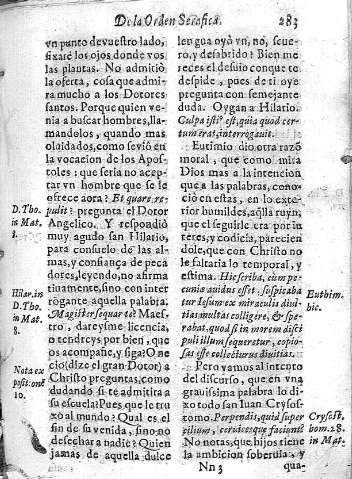 De la Orden Serafica.
283
vn punto devuestro lado,
fixaré los ojos donde vos
las plantas. No admitiò
la oferta, cosa que admi-
ra mucho a los Dotores
santos. Porque quien ve-
nia a buscar hombres, lla-
mandolos, quando mas
oluidados, como se viò en
la vocacion de los Apos-
toles: què seria no acep-
tar vn hombre que se le
ofrece aora? Et quare re-
pulit? pregunta el Dotor
Angelico. Y respondiò
muy agudo san Hilario,
para consuelo de las al-
mas, y confiança de peca
dores, leyendo, no afirma
tiuamente, sino con inter
rogante aquella palabra.
Magister sequar te? Maes-
tro, dareysme licencia,
o tendreys por bien, que
os acompañe, y siga? O ne
cio (dize el gran Dotor) a
Christo preguntas, como
dudando si te admitirà a
su escuela? Pues que le tru
xo al mundo? Qual es el
fin de su venida, sino no
desechar a nadie? Quien
jamas de aquella dulce
D. Tho.
in Mat.
8.
Hilar. in
D. Tho.
in Mat.
8.
Nota ex
positionẽ
10.
lengua oyò vn, no, seue-
ro, y desabrido? Bien me
reces el desuio conque te
despide, pues de ti oye
pregunta con semejante
duda. Oygan a Hilario.
Culpa isti est, quia quod cer-
tum erat, interrogauit.
Eutimio dio otra razõ
moral, que como mira
Dios mas a la intencion
que a las palabras, cono-
ciò en estas, en lo exte-
rior humildes, aq̃lla ruyn,
que el seguirle era por in
teres, y codicia, pareciẽn
dole, que con Christo no
le faltaria lo temporal, y
estima. Hic scriba, cùm pe-
cuniæ auidus esset: suspicaba
tur Iesum ex miraculis diui-
tias multas colligere, & spe-
rabat, quod si in morem disci
puli illum sequeretur, copio-
sas esse collecturus diuitias.
Pero vamos al intento
del discurso, que en vna
grauissima palabra lo di-
xo todo san Iuan Crysos-
tomo. Perpendis, quid super
cilium, ceruicesque faciant?
No notas, que hijos tiene
la ambicion soberuia, y
Euthim.
hic.
Crysost.
hom. 28.
in Mat.
Nn 3
qua-